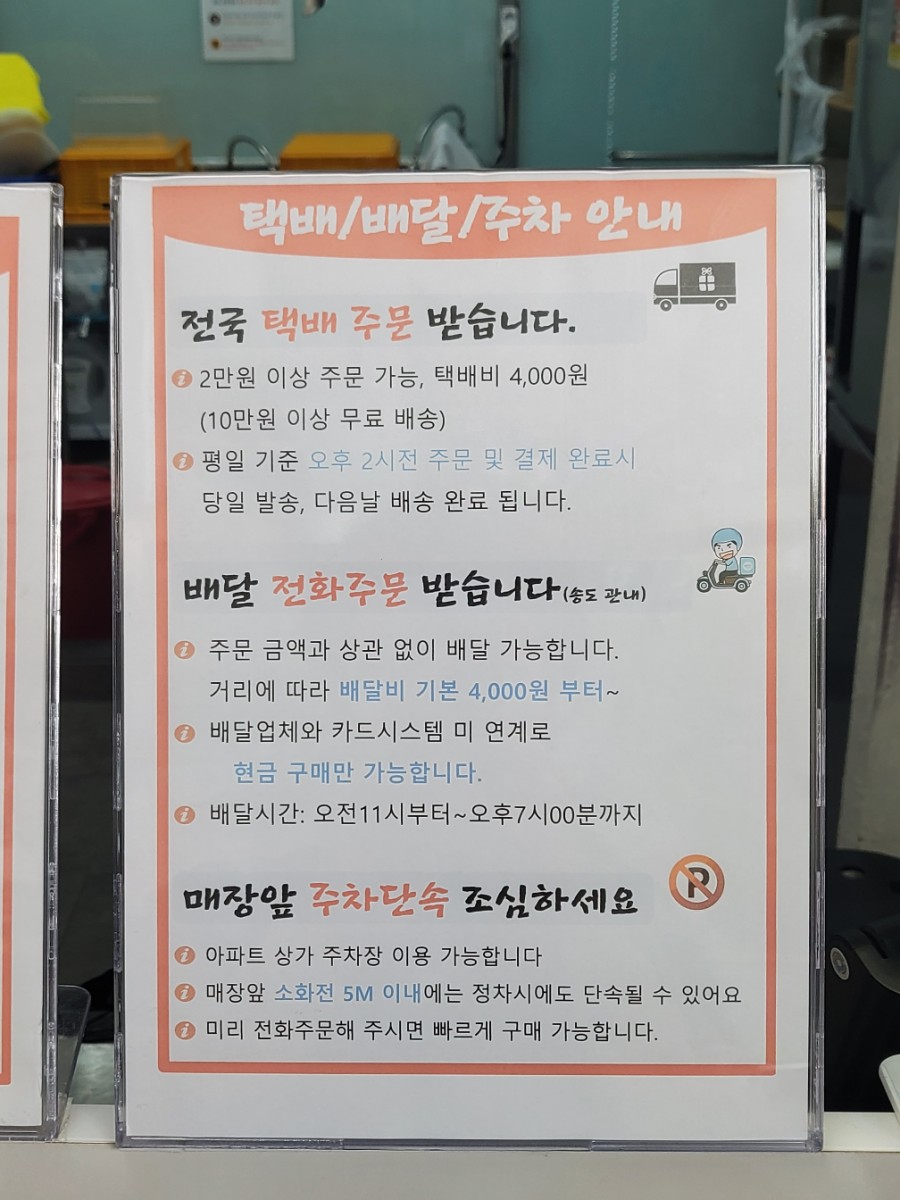 택배/배달/주차 안내
전국 택배 주문 받습니다.
2만원 이상 주문 가능, 택배비 4,000원
(10만원 이상 무료 배송)
평일 기준 오후 2시전 주문 및 결제 완료시
당일 발송, 다음날 배송 완료 됩니다.
배달 전화주문 받습니다(송도 관내)
주문 금액과 상관 없이 배달 가능합니다.
거리에 따라 배달비 기본 4,000원 부터~
배달업체와 카드시스템 미 연계로
현금 구매만 가능합니다.
배달시간: 오전11시부터~오후7시00분까지
매장앞 주차단속 조심하세요
아파트 상가 주차장 이용 가능합니다
매장앞 소화전 5M 이내에는 정차시에도 단속될 수 있어요
미리 전화주문해 주시면 빠르게 구매 가능합니다.